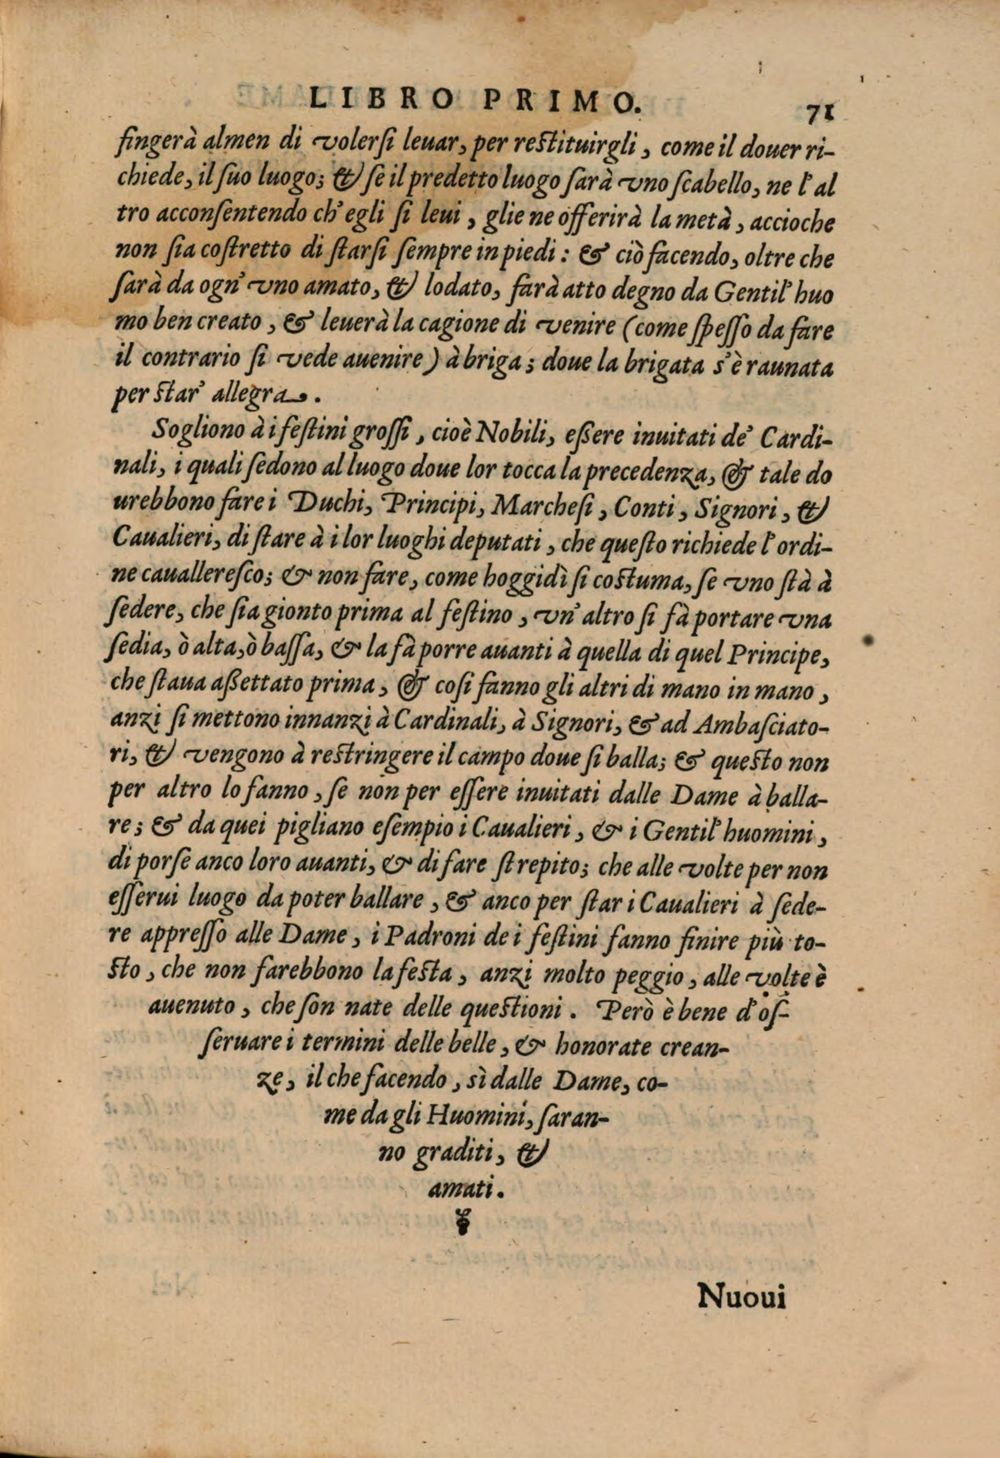 LIBRO PRIMO. 71
fingerà almen di volerſi leuar, per reſtituirgli, come il douer ri-
chiede, il ſuo luogo; & ſe il predetto luogo ſarà vno ſcabello, ne l'al
tro acconſentendo ch'egli ſi leui, glie ne offerirà la metà, accioche
non ſia coſtretto di ſtarſi ſempre in piedi: & ciò facendo, oltre che
ſarà da ogn'vno amato, & lodato, farà atto degno da Gentil'huo
mo ben creato, & leuerà la cagione di venire (come ſpeſſo da fare
il contrario ſi vede auenire) à briga; doue la brigata s'è raunata
per ſtar' allegra.
Sogliono à i feſtini groſſi, cioè Nobili, eßere inuitati de' Cardi-
nali, i quali ſedono al luogo doue lor tocca la precedenza, & tale do
urebbono fare i Duchi, Principi, Marcheſi, Conti, Signori, &
Caualieri, di ſtare à i lor luoghi deputati, che queſto richiede l'ordi-
ne cauallereſco; & non fare, come hoggidì ſi coſtuma, ſe vno ſtà à
ſedere, che ſia gionto prima al feſtino, vn' altro ſi fà portare vna
ſedia, ò alta, ò baſſa, & la fà porre auanti à quella di quel Principe,
che ſtaua aßettato prima, & coſi fanno gli altri di mano in mano,
anzi ſi mettono innanzi à Cardinali, à Signori, & ad Ambaſciato-
ri, & vengono à reſtringere il campo doue ſi balla; & queſto non
per altro lo fanno, ſe non per eſſere inuitati dalle Dame à balla-
re; & da quei pigliano eſempio i Caualieri, & i Gentil'huomini,
di porſe anco loro auanti, & di fare ſtrepito; che alle volte per non
eſſerui luogo da poter ballare, & anco per ſtar i Caualieri à ſede-
re appreſſo alle Dame, i Padroni de i feſtini fanno finire più to-
ſto, che non farebbono la feſta, anzi molto peggio, alle volte è
auenuto, che ſon nate delle queſtioni. Però è bene d'oſ-
ſeruare i termini delle belle, & honorate crean-
ze, il che facendo, sì dalle Dame, co-
me da gli Huomini, ſaran-
no graditi, &
amati.
Nuoui